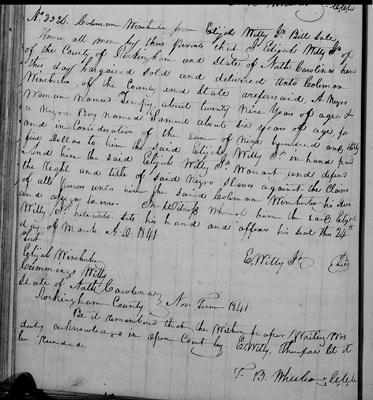 No 2226. Coleman Winchester from Elijah Witty Jr Bill Sale
Know all men by these Presents that I Elijah Witty Jr of
of the County of Rockingham and State of North Carolina have
this day bargained Sold and delivered unto Coleman
Winchester of the County and State aforesaid, A Negro
Woman Named about twenty Nine Years of age &
a Negro Boy Named Samuel about Six years of age for
and in Consideration of the Sum of Nine hundred and thirty
five dollars to him the said Elijah Witty Jr in hand paid
And him the said Elijah Witty Jr Warant and defend
the Right and title of Said Negro Slaves against the Claim
of all Person unto him the said Coleman Winchester his heirs
and assigns forever. In Witness Whereof him the said Elijah
Witty Jr hereunto sets his hand and affixes his Seal this 24th
day of March A.D. 1841
Test E. Witty Jr Seal
Elijah Winchester
Cummings Witty
State of North Carolina
Rockingham County Nov. Term 1841
Be it remembered that the Within paper Writing Was
duly acknowledged in Open Court by E. Witty, therefore let it
be
T. B. Wheeler